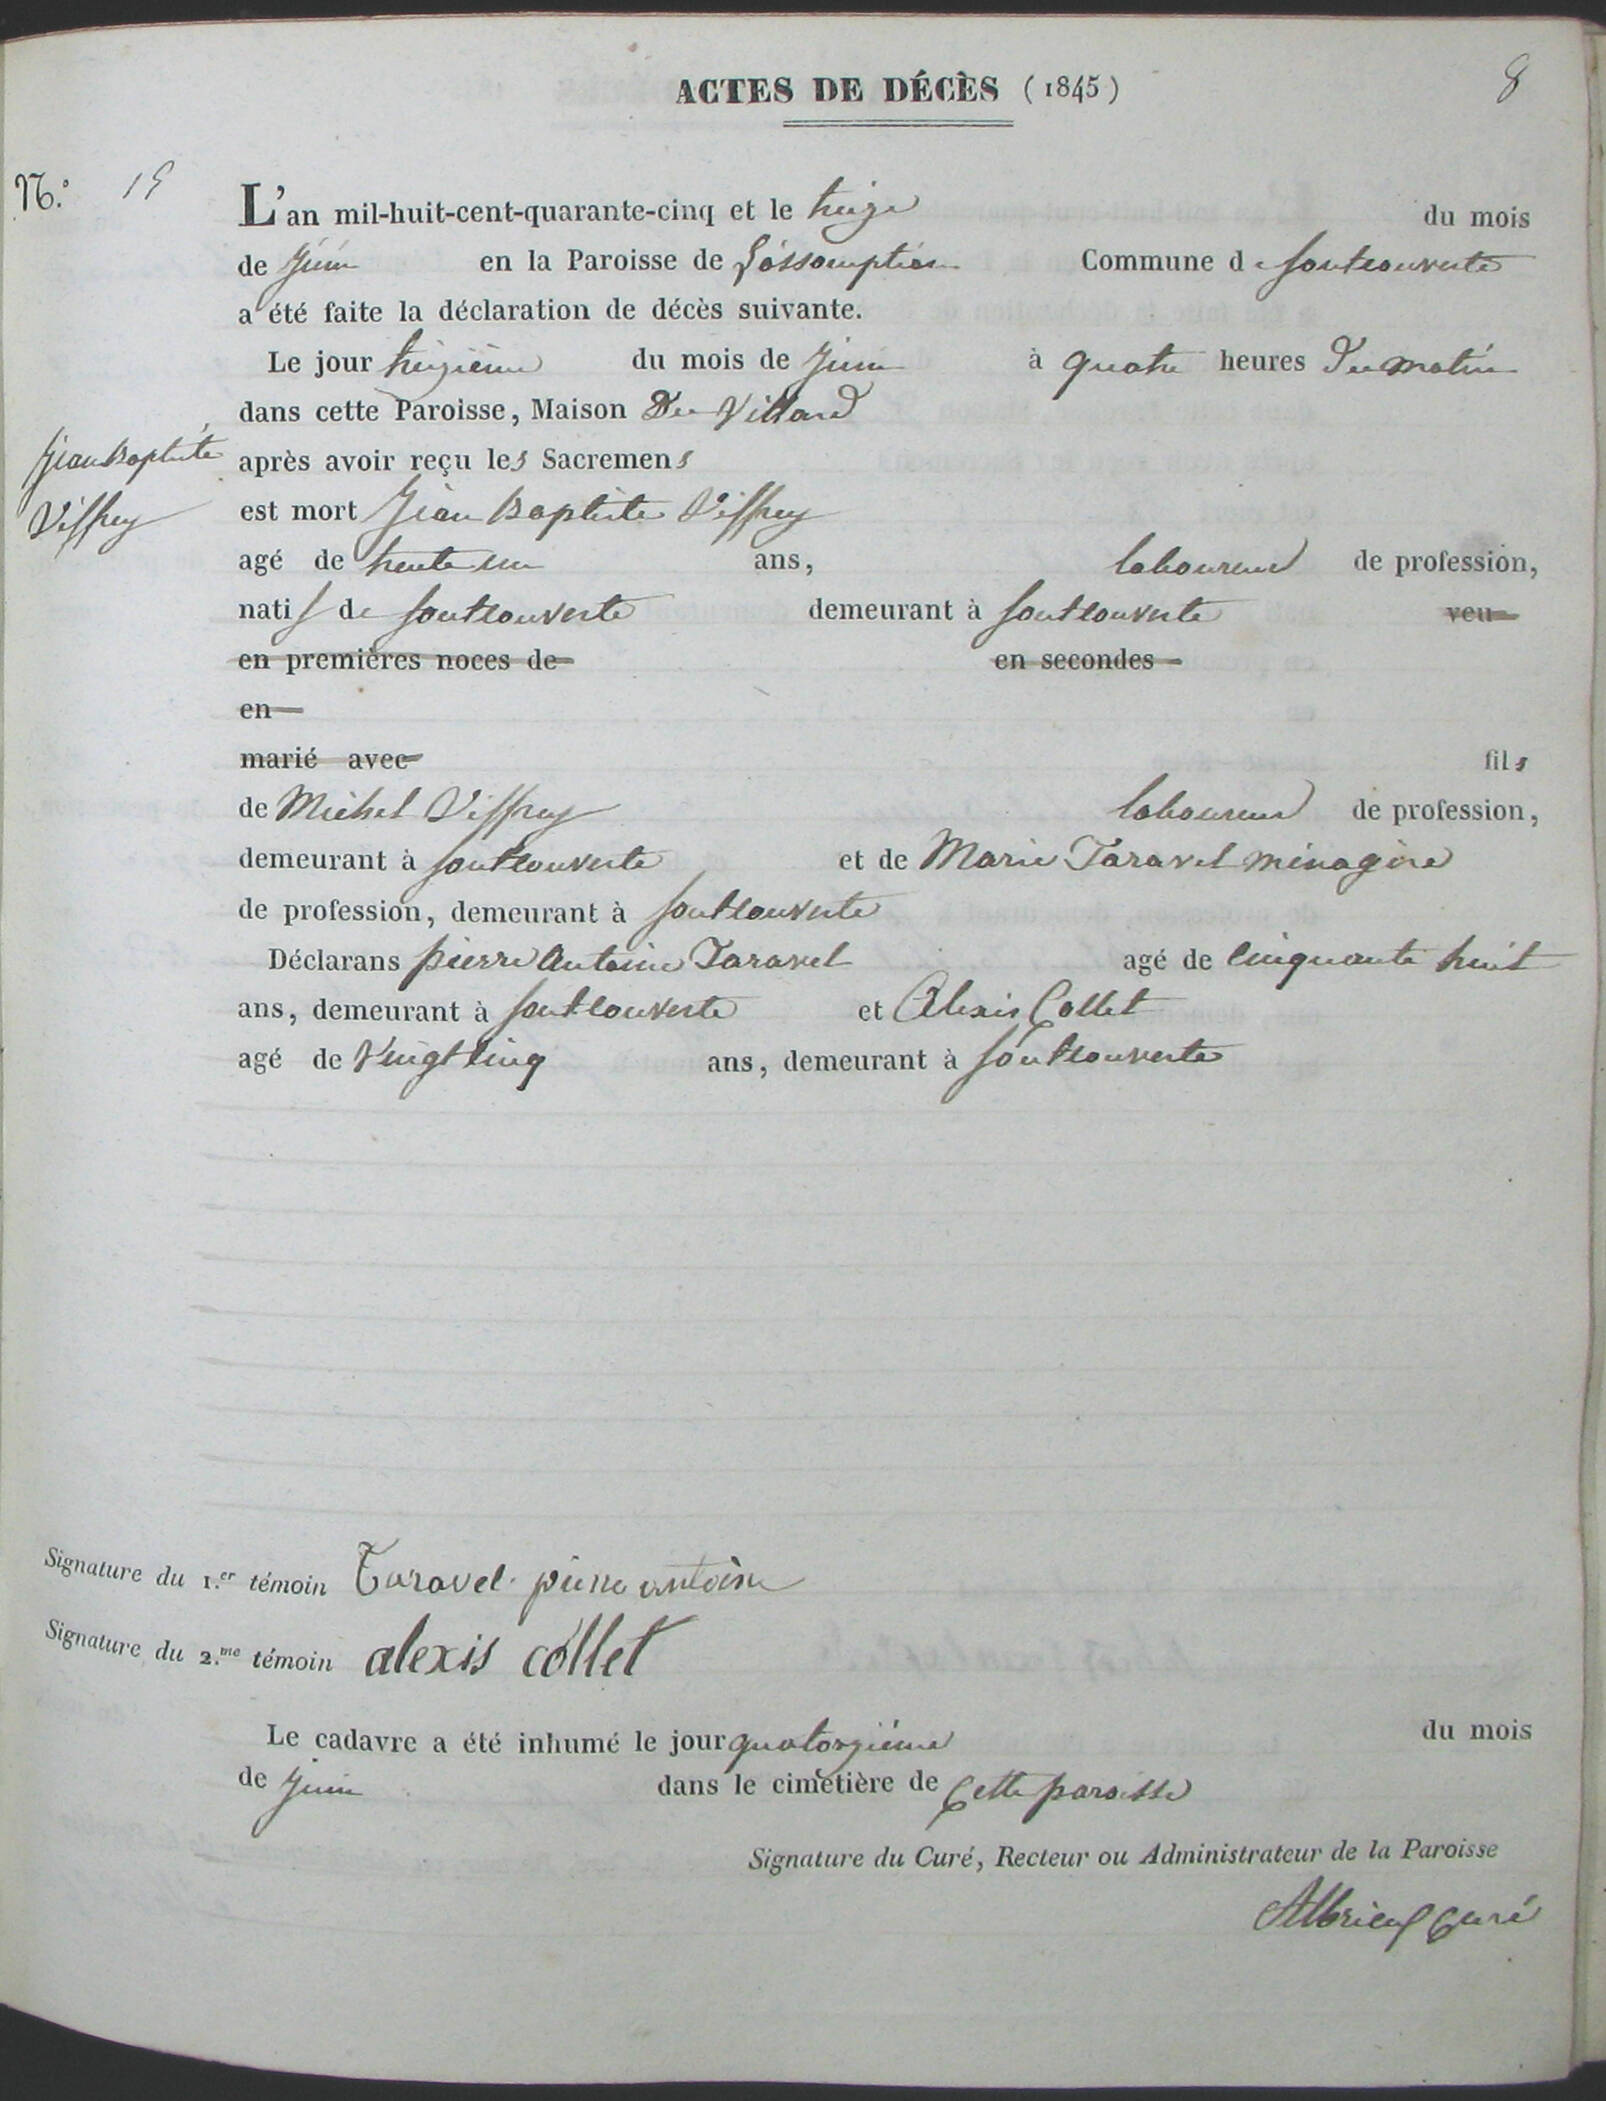 ACTES DE DÉCÈS (1845)
8
N.° 15
L'an mil-huit-cent-quarante-cinq et le treize du mois
de Juin en la Paroisse de L'assomption Commune de fontcouverte
a été faite la déclaration de décès suivante.
Le jour treizième du mois de Juin à quatre heures Du matin
dans cette Paroisse, Maison Du Villard
Jean Baptiste
Viffrey
après avoir reçu les Sacremens
est mort Jean Baptiste Viffrey
agé de trente un ans, laboureur de profession,
natif de fontcouverte demeurant à fontcouverte veu
en premières noces de en secondes
en
marié avec fils
de Michel Viffrey laboureur de profession,
demeurant à fontcouverte et de Marie Taravel ménagère
de profession, demeurant à fontcouverte
Déclarans pierre Antoine Taravel agé de cinquante huit
ans, demeurant à fontcouverte et Alexis Collet
agé de Vingt cinq ans, demeurant à fontcouverte
Signature du 1.er témoin Taravel pierre antoine
Signature du 2.me témoin alexis collet
Le cadavre a été inhumé le jour quatorzième du mois
de Juin dans le cimetière de cette paroisse
Signature du Curé, Recteur ou Administrateur de la Paroisse
Albrieux curé